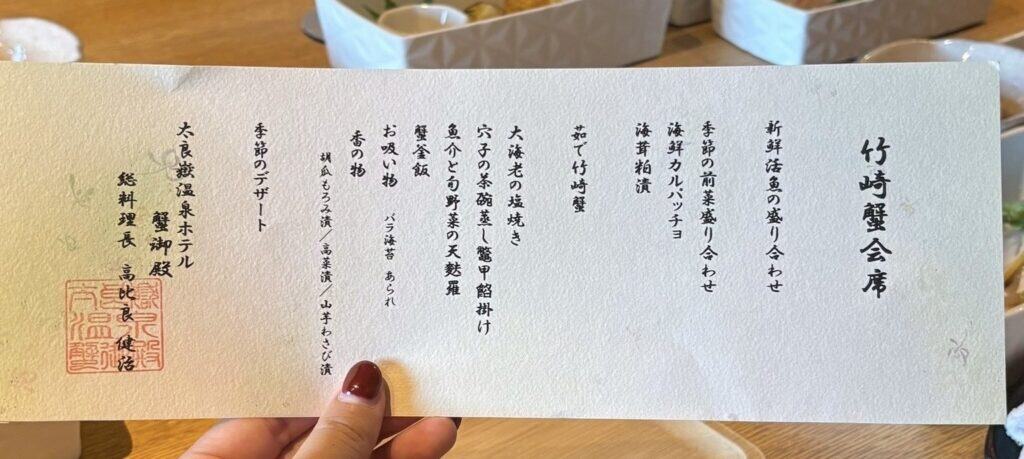 竹崎蟹会席
新鮮活魚の盛り合わせ
季節の前菜盛り合わせ
海鮮カルパッチョ
海茸粕漬
茹で竹崎蟹
大海老の塩焼き
穴子の茶碗蒸し鼈甲餡掛け
魚介と旬野菜の天麩羅
蟹釜飯
お吸い物 バラ海苔 あられ
香の物
胡瓜もろみ漬/高菜漬/山芋わさび漬
季節のデザート
太良嶽温泉ホテル
蟹御殿
総料理長 高比良 健治